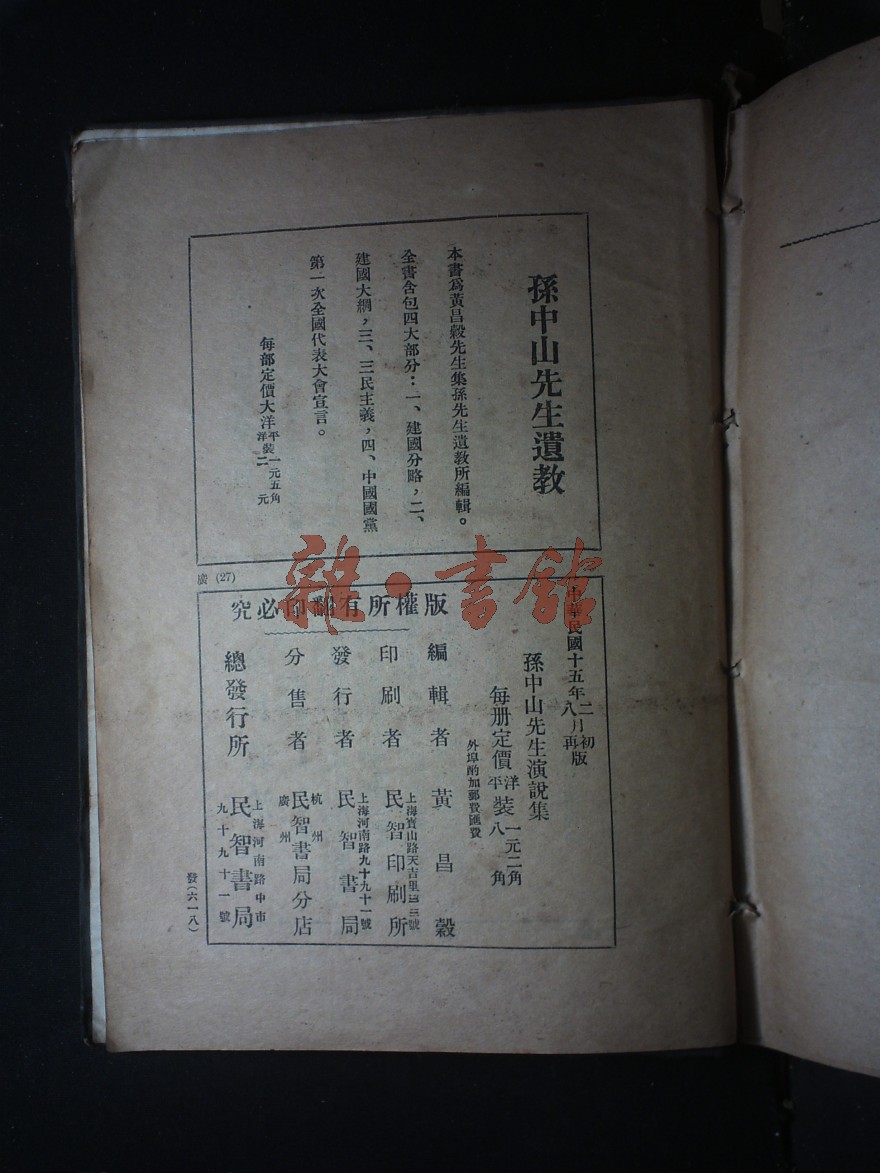 孫中山先生遺教
本書爲黃昌穀先生集孫先生遺教所編輯。
全書含包四大部分：一、建國分略，二、
建國大綱，三、三民主義，四、中國國黨
第一次全國代表大會宣言。
每部定價大洋平裝一元五角
洋裝二元
廣 (27)
中華民國十五年二月初版
八月再版
孫中山先生演說集
每册定價洋裝一元二角
平裝八角
外埠酌加郵費匯費
版權所有翻印必究
編輯者 黃昌穀
印刷者 上海寶山路天吉里三號
民智印刷所
發行者 上海河南路九十九十一號
民智書局
分售者 杭州
廣州
民智書局分店
總發行所 上海河南路中市
民智書局
九十九十一號
發(六一八)
雜·書館